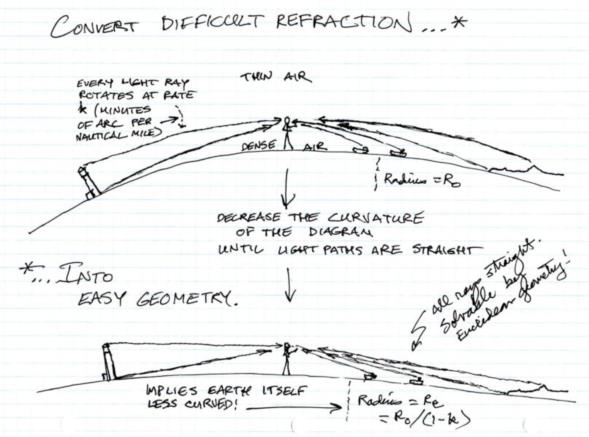 CONVERT DIFFICULT REFRACTION...*
EVERY LIGHT RAY
ROTATES AT RATE
k (MINUTES
OF ARC PER
NAUTICAL MILE)
THIN AIR
DENSE AIR
Radius = Ro
DECREASE THE CURVATURE
OF THE DIAGRAM
UNTIL LIGHT PATHS ARE STRAIGHT
*...INTO
EASY GEOMETRY.
all rays straight.
Solvable by
Euclidean geometry!
IMPLIES EARTH ITSELF
LESS CURVED!
Radius = Re
= Ro/(1-k)